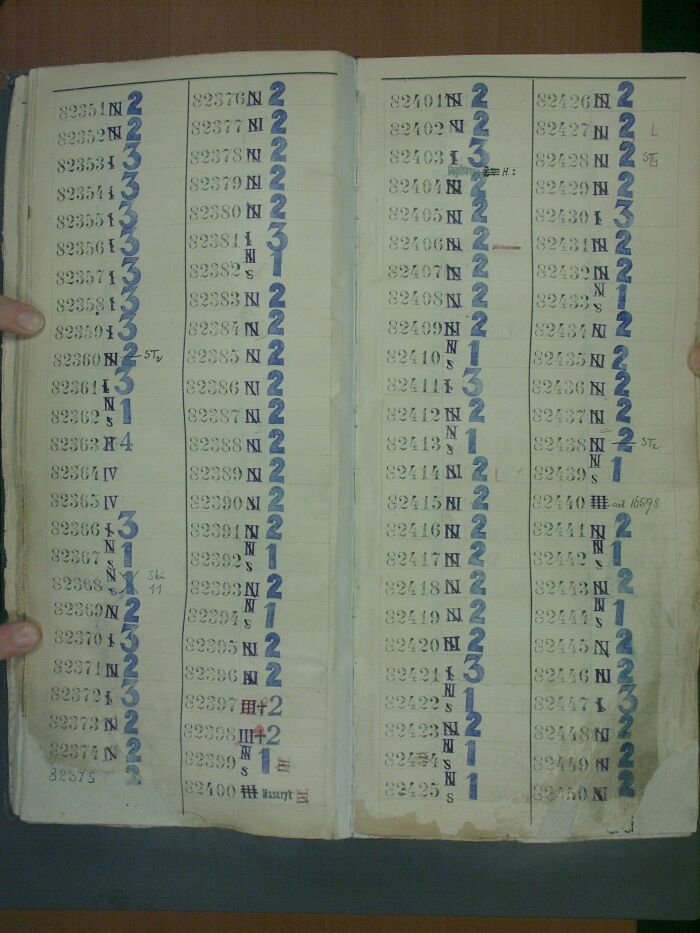 82351 N 2
82352 N 2
82353 I 3
82354 I 3
82355 I 3
82356 I 3
82357 I 3
82358 I 3
82359 I 3
82360 N 2 ST2
82361 I 3
82362 N s 1
82363 II 4
82364 IV
82365 IV
82366 I 3
82367 N s 1
82368 N s 1 11
82369 N 2
82370 I 3
82371 N 2
82372 I 3
82373 N 2
82374 N 2
82375 2
82376 N 2
82377 N 2
82378 N 2
82379 N 2
82380 N 2
82381 I 3
82382 N s 1
82383 N 2
82384 N 2
82385 N 2
82386 N 2
82387 N 2
82388 N 2
82389 N 2
82390 N 2
82391 N 2
82392 N s 1
82393 N 2
82394 N s 1
82395 N 2
82396 N 2
82397 III+2
82398 III+2
82399 N s 1
82400 III Masaryk
82401 N 2
82402 N 2
82403 I 3
82404 N 2
82405 N 2
82406 N 2
82407 N 2
82408 N 2
82409 N 2
82410 N s 1
82411 I 3
82412 N 2
82413 N s 1
82414 N 2 L
82415 N 2
82416 N 2
82417 N 2
82418 N 2
82419 N 2
82420 N 2
82421 I 3
82422 N s 1
82423 N 2
82424 N s 1
82425 N s 1
82426 N 2
82427 N 2 L
82428 N 2
82429 N 2
82430 I 3
82431 N 2
82432 N 2
82433 N s 1
82434 N 2
82435 N 2
82436 N 2
82437 N 2
82438 N 2 ST2
82439 N s 1
82440 III 16598
82441 N 2
82442 N s 1
82443 N 2
82444 N s 1
82445 N 2
82446 N 2
82447 I 3
82448 N 2
82449 N 2
82450 N 2